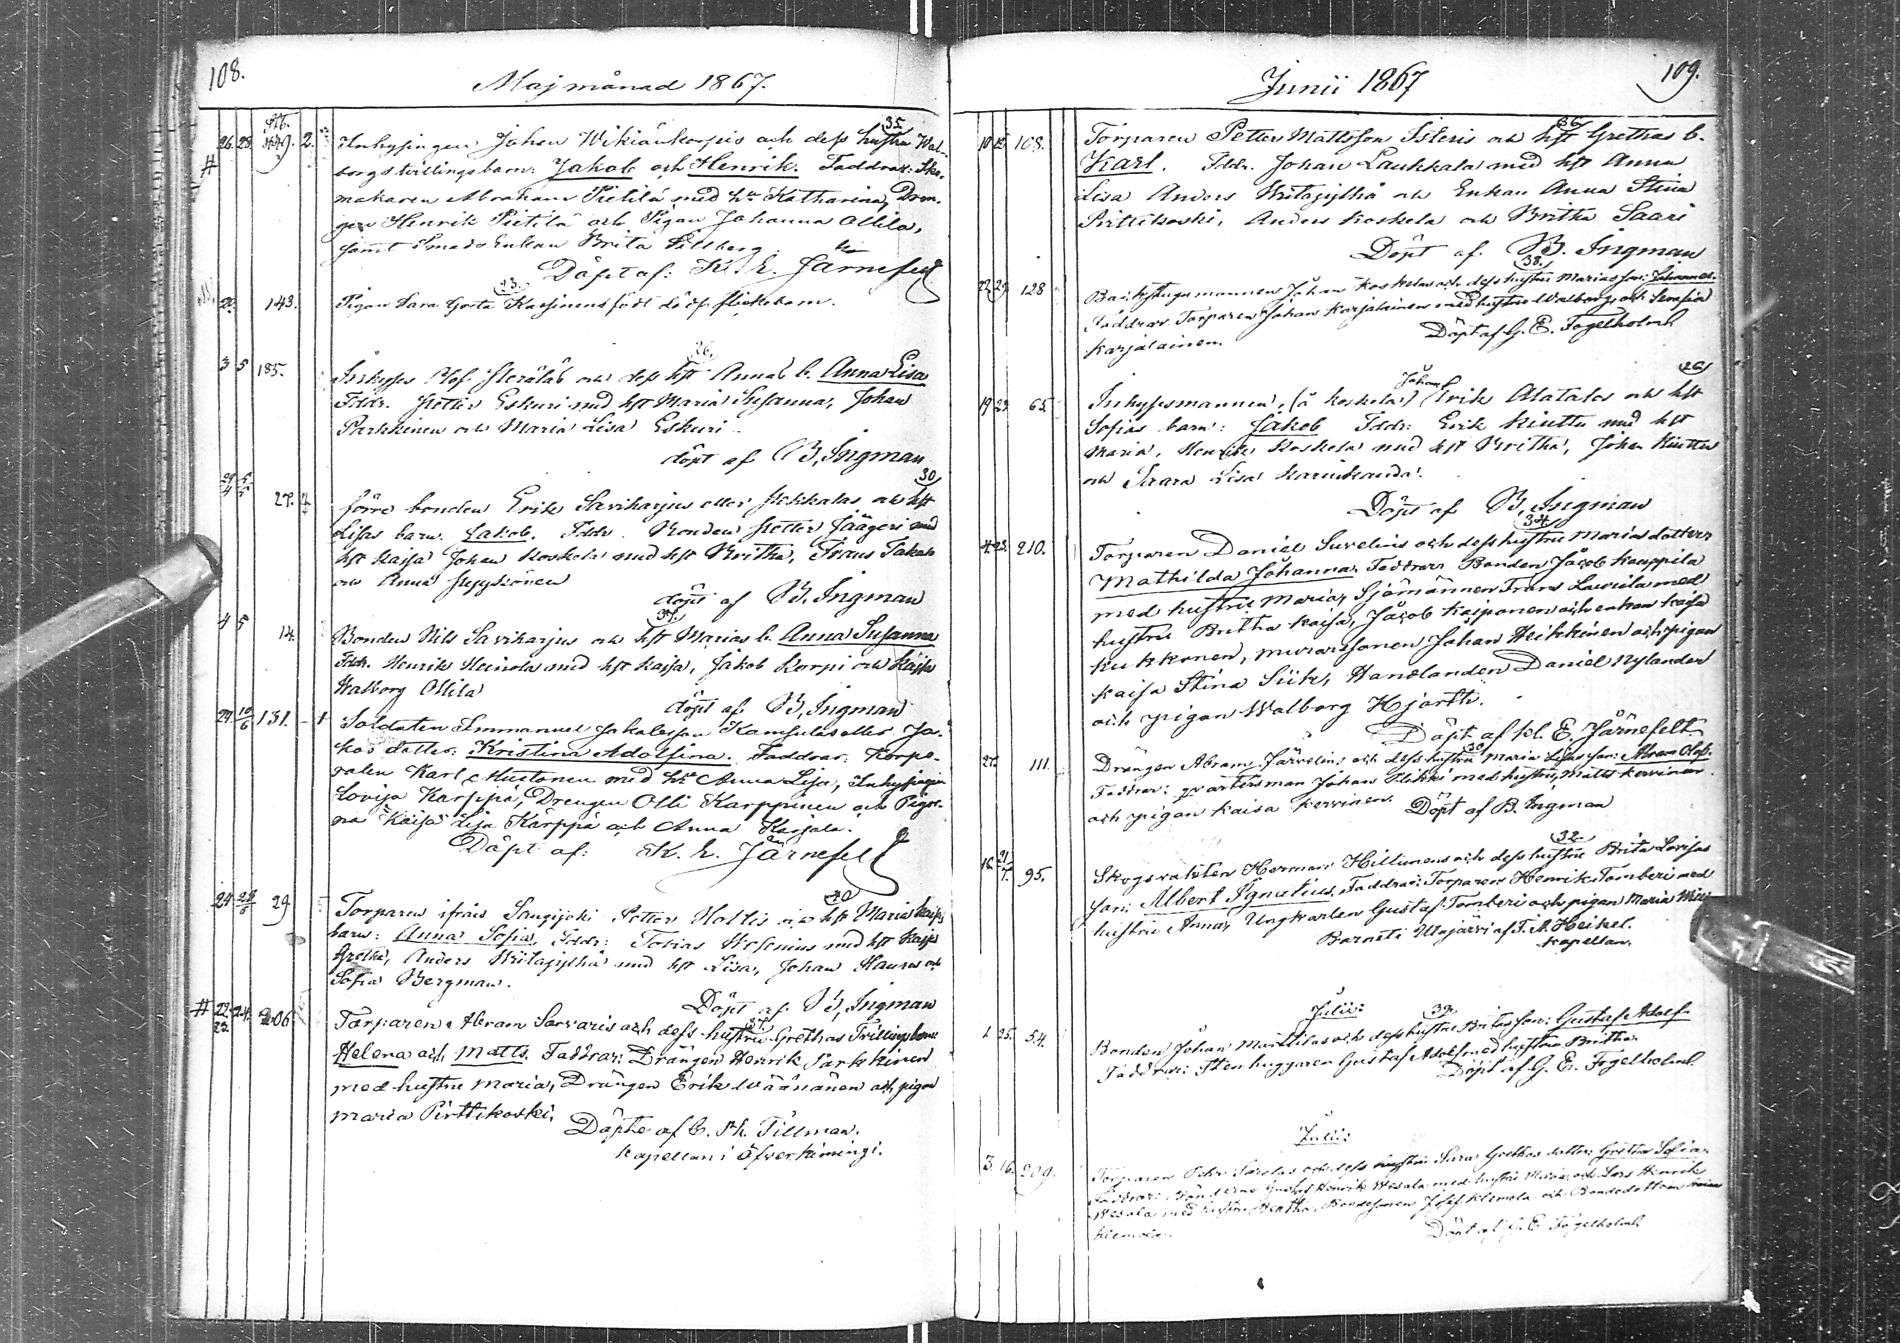 108.
Maj månad 1867.
26. 28. 149. 2. Inhysingen Johan Wikiänkorpis och dess hustru Wal- 35.
borgs tvillingsbarn: Jakob och Henrik. Faddrar: Sko-
makaren Abraham Pietilä med h:u Katharina, Dren-
gen Henrik Pietilä och Pigan Johanna Ollila,
samt Smeds Enkan Brita Lillberg.
Döpt af: K. E. Järnefelt
23.
22. 143. Pigan Sara Greta födt dödt flickebarn.
26.
3 5 185. Inhyses Olof och dess hst Annas b. Anna Lisa
Fddr. Petter Eskuri med hst Maria Susanna, Johan
Parkkinen och Maria Lisa Eskuri.
döpt af B. Ingman
30
29/4 5/5 27. förre bonden Erik Saviharjus eller och hst
Lisas barn. Jakob. Fddr. Bonden Petter Jäägeri med
hst Kaisa Johan Koskela med hst Britha, Frans
och Anna
döpt af B. Ingman
37.
4 5 14. Bonden Nils Saviharjus och hst Marias b. Anna Susanna
Fddr. Henrik Heinola med hst Kaisa, Jakob Korpi och Kaisa
Walborg Ollila
döpt af B. Ingman
29. 10/6 131. 1 Soldaten Immanuel Jakobsson eller Ja-
kos dotter: Kristina Adolfina. Faddrar: Korpo-
ralen Karl Mustonen med h:u Anna Lisa, Inhysingen
Lovisa Kärppä, Drengen Olli Karppinen och Pigor-
na Kaisa Lisa Kärppä och Anna Karjala.
Döpt af: K. E. Järnefelt
40
24 28/6 29 Torparen ifrån Sangijoki Petter Hottis och hst Maria Kaisas
barn: Anna Sofia, Fddr: Tobias med hst Kaisa
Gretha, Anders Niitajylhä med hst Lisa, Johan och
Sofia Bergman.
Döpt af B. Ingman
37.
22. 23. 24. 206. Torparen Abram Sarvaris och dess hustru Grethas Tvillingbarn
Helena och Matts. Faddrar: Drängen Henrik Parkkinen
med hustru Maria, Drängen Erik Wäänänen och pigan
Maria Pirttikoski.
Döpte af C. Tillman.
Kapellan i Öfverkiimingi.
109.
Junii 1867
36
10 12 108. Torparen Petter Mattsson och hst Grethas b.
Karl. Fddr. Johan Laukkala med hst Anna
Lisa Anders Niitajylhä och Enkan Anna Stina
Pirttikoski, Anders Koskela och Britha Saari
Döpt af. B. Ingman
38.
22 29 128 Backstugumannen Johan Koskelas och dess hustru Marias son: Johannes.
Faddrar Torparen Johan Karjalainen med hustru Walborg, och Serafia
Karjalainen. Döpt af G. E. Fogelholm
26
19 23 65. Inhysesmannen, (å Koskela) Johan Erik Alatalos och hst
Sofias barn: Jakob Fddr: Erik Kinttu med hst
Maria, Henrik Koskela med hst Britha, Johan Kinttu
och Saara Lisa
Döpt af B. Ingman
34
4 23. 210. Torparen Daniel Suvelins och dess hustru Marias dotter
Mathilda Johanna. Faddrar Bonden Jacob Kauppila
med hustru Maria, Sjömannen Frans Laurila med
hustru Britha Kaisa, Jacob Kaiponen och enkan Kaisa
Kukkonen, murarsonen Johan Heikkinen och pigan
Kaisa Stina Siik, Handlanden Daniel Nylander
och pigan Walborg Hjorth.
Döpt af K. E. Järnefelt
30
27. 111 Drängen Abram Järvelins och dess hustru Maria Lisas son: Abram Olof.
Faddrar: qvartersman Johan med hustru, Matts Kervinen
och pigan Kaisa Kervinen. Döpt af B. Ingman
32.
16. 21/7. 95. Skogsvakten Herman Hiltunens och dess hustru Brita Lovisas
son: Albert Ignatius, Faddrar: Torparen Henrik Tomberi med
hustru Anna, Ungkarlen Gustaf Tomberi och pigan Maria
Barnet i Utajärvi af F. A. Heikel.
Kapellan.
Julii:
33.
1 25. 54. Bonden Johan Marttilas och dess hustru Britas son: Gustaf Adolf.
Faddrar: Stenhuggaren Gustaf Adolf med hustru Britha.
Döpt af G. E. Fogelholm
Julii:
3. 16. 209. Torparen och dess hustru Sara Grethas dotter: Gretha Sofia.
Faddrar: Bönderne Gustaf Henrik Wesala med hustru Maria och Lars Henrik
Wesala med hustru Bertha, Bondesonen Josef Klemola och Bondedottren
Klemola. Döpt af G. E. Fogelholm